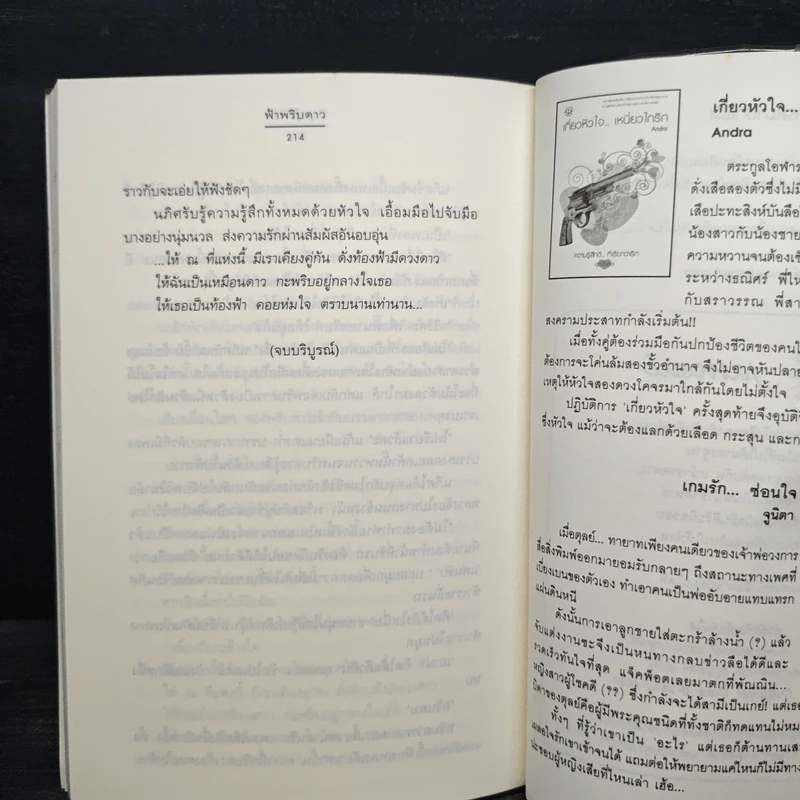 ฟ้าพริบดาว
214
ราวกับจะเอ่ยให้ฟังชัดๆ
นภิศรับรู้ความรู้สึกทั้งหมดด้วยหัวใจ เอื้อมมือไปจับมือ
บางอย่างนุ่มนวล ส่งความรักผ่านสัมผัสอันอบอุ่น
...ให้ ณ ที่แห่งนี้ มีเราเคียงคู่กัน ดั่งท้องฟ้ามีดวงดาว
ให้ฉันเป็นเหมือนดาว กะพริบอยู่กลางใจเธอ
ให้เธอเป็นท้องฟ้า คอยห่มใจ ตราบนานเท่านาน...
(จบบริบูรณ์)
เกี่ยวหัวใจ... เหนี่ยวไกรัก
Andra
ความรู้สึกดี... ที่เรียกว่ารัก
เกี่ยวหัวใจ...
Andra
ตระกูลโอฬาร
ดั่งเสือสองตัวซึ่งไม่มี
เสือปะทะสิงห์บันลือ
น้องสาวกับน้องชาย
ความหวานจนต้องเข้
ระหว่างธณิศร์ พี่ให
กับสราวรรณ พี่สา
สงครามประสาทกำลังเริ่มต้น!!
เมื่อทั้งคู่ต้องร่วมมือกันปกป้องชีวิตของคนใ
ต้องการจะโค่นล้มสองขั้วอำนาจ จึงไม่อาจหันปลาย
เหตุให้หัวใจสองดวงโคจรมาใกล้กันโดยไม่ตั้งใจ
ปฏิบัติการ 'เกี่ยวหัวใจ' ครั้งสุดท้ายจึงอุบัติ
ซึ่งหัวใจ แม้ว่าจะต้องแลกด้วยเลือด กระสุน และก
เกมรัก... ซ่อนใจ
จูนิตา
เมื่อตุลย์... ทายาทเพียงคนเดียวของเจ้าพ่อวงการ
สื่อสิ่งพิมพ์ออกมายอมรับกลายๆ ถึงสถานะทางเพศที่
เบี่ยงเบนของตัวเอง ทำเอาคนเป็นพ่ออับอายแทบแทรก
แผ่นดินหนี
ดังนั้นการเอาลูกชายใส่ตะกร้าล้างน้ำ (?) แล้ว
จับแต่งงานซะจึงเป็นหนทางกลบข่าวลือได้ดีและ
รวดเร็วทันใจที่สุด แจ็คพ็อตเลยมาตกที่พัณณิน...
หญิงสาวผู้โชคดี (??) ซึ่งกำลังจะได้สามีเป็นเกย์! แต่เธอ
บิดาของตุลย์คือผู้มีพระคุณชนิดที่ทั้งชาติก็ทดแทนไม่หม
ทั้งๆ ที่รู้ว่าเขาเป็น 'อะไร' แต่เธอก็ต้านทานเส
เผลอใจรักเขาเข้าจนได้ แถมต่อให้พยายามแค่ไหนก็ไม่มีทาง
จะชอบผู้หญิงเสียที่ไหนเล่า เฮ้อ...